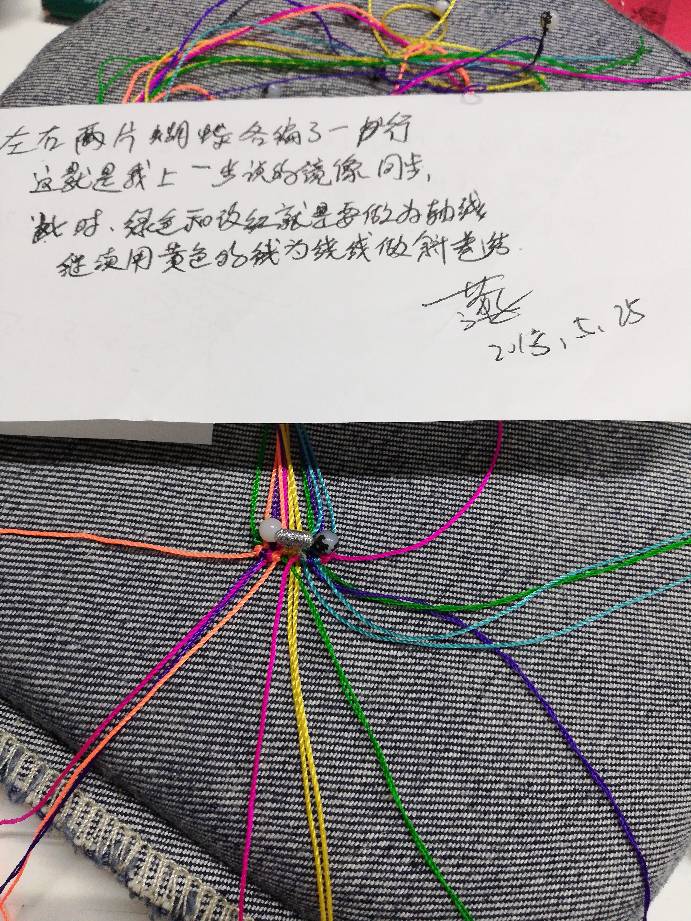 左右两片蝴蝶各编了一行
这就是我上一步说的镜像同步,
此时,绿色和玫红就是要做为轴线
继续用黄色的线为绕线做斜卷结.
2018.5.25